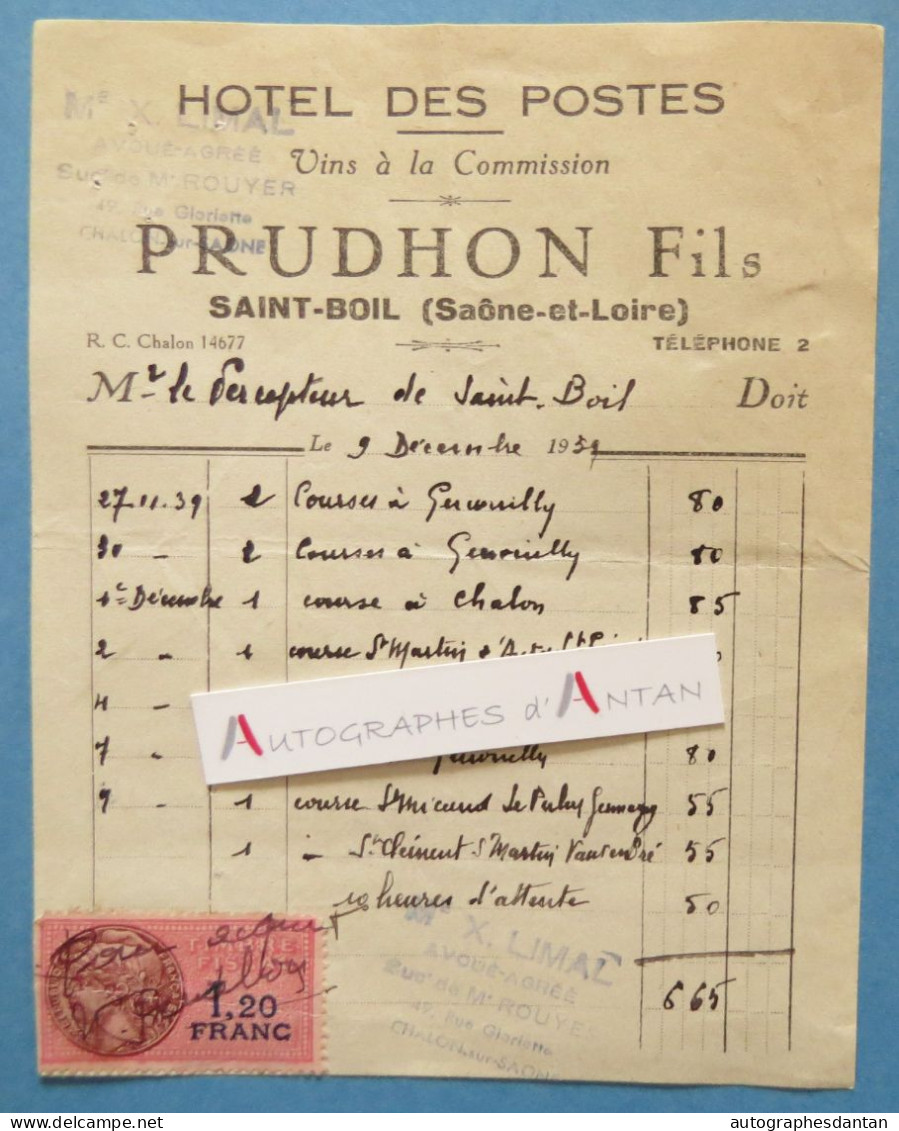 HOTEL DES POSTES
Vins à la Commission
Me X. LIMAL
AVOUÉ-AGRÉÉ
Sucr de Me ROUYER
49, Rue Gloriette
CHALON-sur-SAÔNE
PRUDHON Fils
SAINT-BOIL (Saône-et-Loire)
R. C. Chalon 14677 TÉLÉPHONE 2
Mr le Percepteur de Saint-Boil Doit
Le 9 Décembre 1939
27.11.39 2 Courses à Genouilly 80
30 - 2 Courses à Genouilly 80
1er Décembre 1 course à Chalon 85
2 " 1 course St Martin
4 "
AUTOGRAPHES d'ANTAN
7 " Genouilly 80
9 " 1 course St Micaud Le Puley 55
1 - St Clément St Martin 55
10 heures d'attente 50
665
Pour acquit
TIMBRE
FISCAL
1,20
FRANC
Me X. LIMAL
AVOUÉ-AGRÉÉ
Sucr de Me ROUYER
49, Rue Gloriette
CHALON-sur-SAÔNE
delcampe.net
autographesdantan